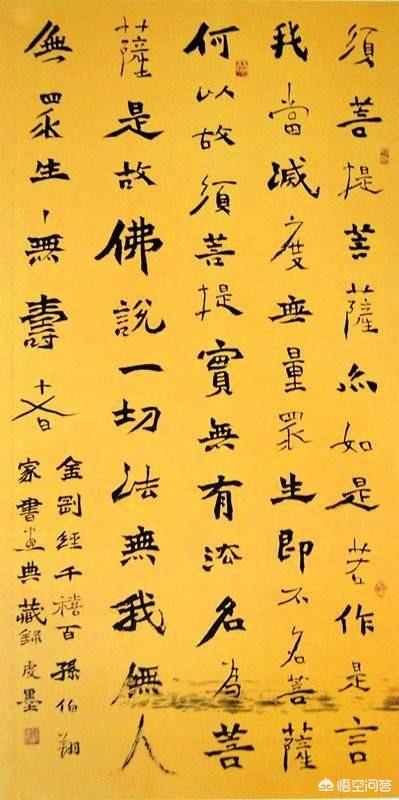 須菩提菩薩亦如是若作是言
我當滅度無量眾生即不名菩薩
何以故須菩提實無有法名為菩
薩是故佛說一切法無我無人
無眾生無壽者
金剛經千禧百孫伯翔
家書畫典藏錄皮墨
悟空问答